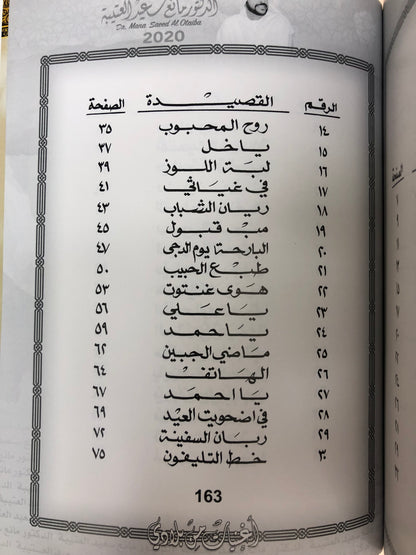 الدكتور مانع سعيد العتيبة
Dr. Mana Saeed Al Otaiba
2020
الرقم القصيدة الصفحة
١٤ روح المحبوب ٣٥
١٥ ياخل ٣٧
١٦ لبة اللوز ٣٩
١٧ في غيابتي ٤١
١٨ ريان الشباب ٤٣
١٩ مب قبول ٤٥
٢٠ البارحة يوم الدجى ٤٧
٢١ طبع الحبيب ٥٠
٢٢ هوى غنتوت ٥٣
٢٣ يا علي ٥٦
٢٤ يا حمد ٥٩
٢٥ ماضي الجبين ٦٢
٢٦ الهاتف ٦٤
٢٧ يا احمد ٦٧
٢٨ في اضحويت العيد ٦٩
٢٩ ربان السفينة ٧٢
٣٠ خط التليفون ٧٥
163
أغنيات من بلادي